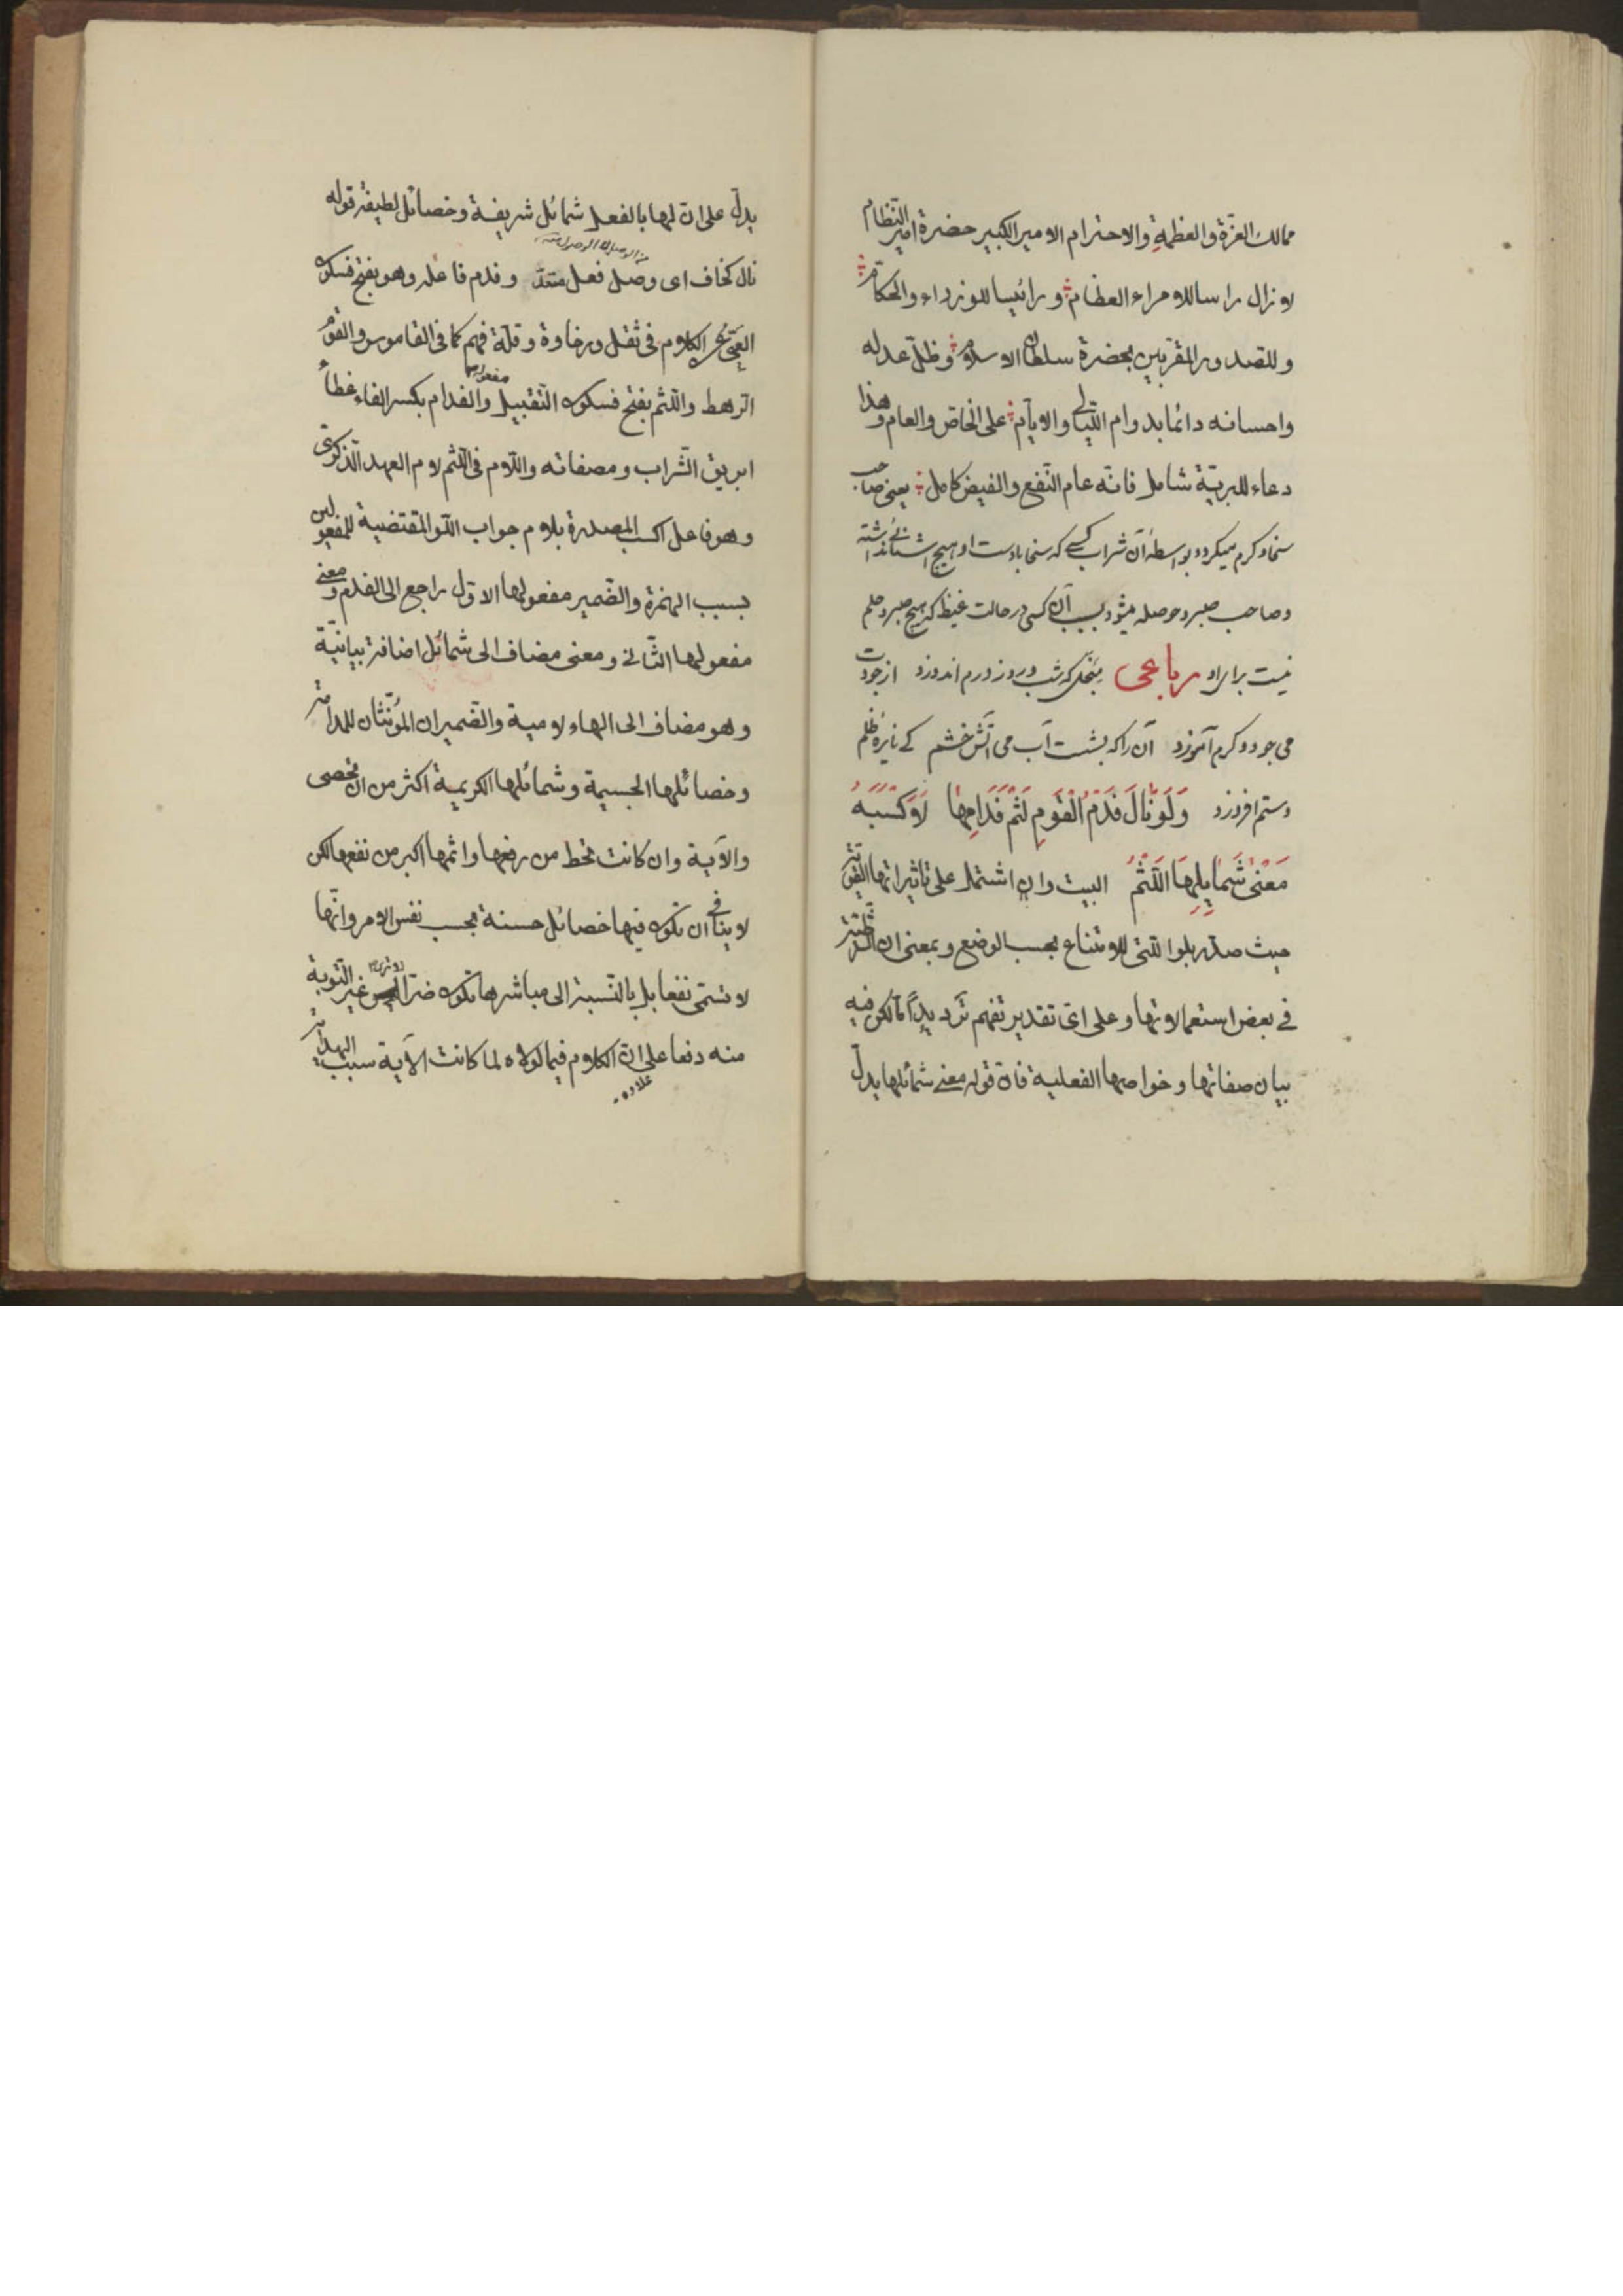 ممالك العزّة والعظمةِ والاحترام الامير الكبير حضرة امير النّظام
لا زال راسا للامراء العظام و رائيسا للوزراء والحكّام
وللصدور المقرّبين بحضرة سلطان الاسلام وظلّ عدله
واحسانه دائما بدوام اللّيالى والايّام على الخاصّ والعام وهذا
دعاء للبريّة شامل فانّه عام النّفع والفيض كامل يعنى صاحب
سخا و كرم ميكردد بواسطهٔ آن شراب كسى كه سخا با دست او هيچ اشنائى نداشته
وصاحب صبر و حوصله ميشود بسبب آن كسى در حالت غيظ كه هيچ صبر و حلم
نيست براى او رباعى بخلى كه شب و روز درم اندوزد از جودت
مى جود و كرم آموزد آن را كه بشست آب مى آتش خشم كے نايرهٔ ظلم
وستم افروزد وَلَوْ نَالَ فَدْمُ الْقَوْمِ لَثْمَ فَدَامِهَا لَأَكْسَبَهُ
مَعْنٰى شَمَايِلِهَا اللَّثْمُ البيت وان اشتمل على تاثيراتها القويّة
حيث صدّر بلو الّتى للامتناع بحسب الوضع و بمعنى ان الشّرطيّة
فى بعض استعمالاتها وعلى اىّ تقدير تفهم ترديداً مّا لكن فيه
بيان صفاتها وخواصها الفعلية فانّ قوله معنى شمائلها يدلّ
يدلّ على انّ لها بالفعل شمائل شريفة وخصائل لطيفة قوله
نال كخاف اى وصل فعل متعدّ وفدم فاعله وهو بفتح فسكون
العَيّ عن الكلام فى ثقل ورخاوة وقلّة فهم كما فى القاموس والقوم
الرهط واللّثم بفتح فسكون التّقبيل مفعولها والفدام بكسر الفاء غطاء
ابريق الشّراب ومصفاته واللّام فى اللّثم لام العهد الذّكرىّ
وهو فاعل اكسب المصدرة بلام جواب اللّو المقتضية للمفعولين
بسبب الهمزة والضمير مفعولها الاوّل راجع الى الفدم ومعنى
مفعولها الثّانى و معنى مضاف الى شمائل اضافة بيانيّة
وهو مضاف الى الهاء لامية والضميران المؤنّثان للمدامة
وخصائلها الجسيمة وشمائلها الكريمة اكثر من ان تحصى
والآية وان كانت تحط من رفعها واثمها اكبر من نفعها لكن
لا ينافى ان تكون فيها خصائل حسنة بحسب نفس الامر وانّها
لا تسمّى نفعا بل بالنّسبة الى مباشرها تكون ضرّا غير التّوبة
منه دفعا على انّ الكلام فيما لولاه لما كانت الآية سبب الهداية
علاوه